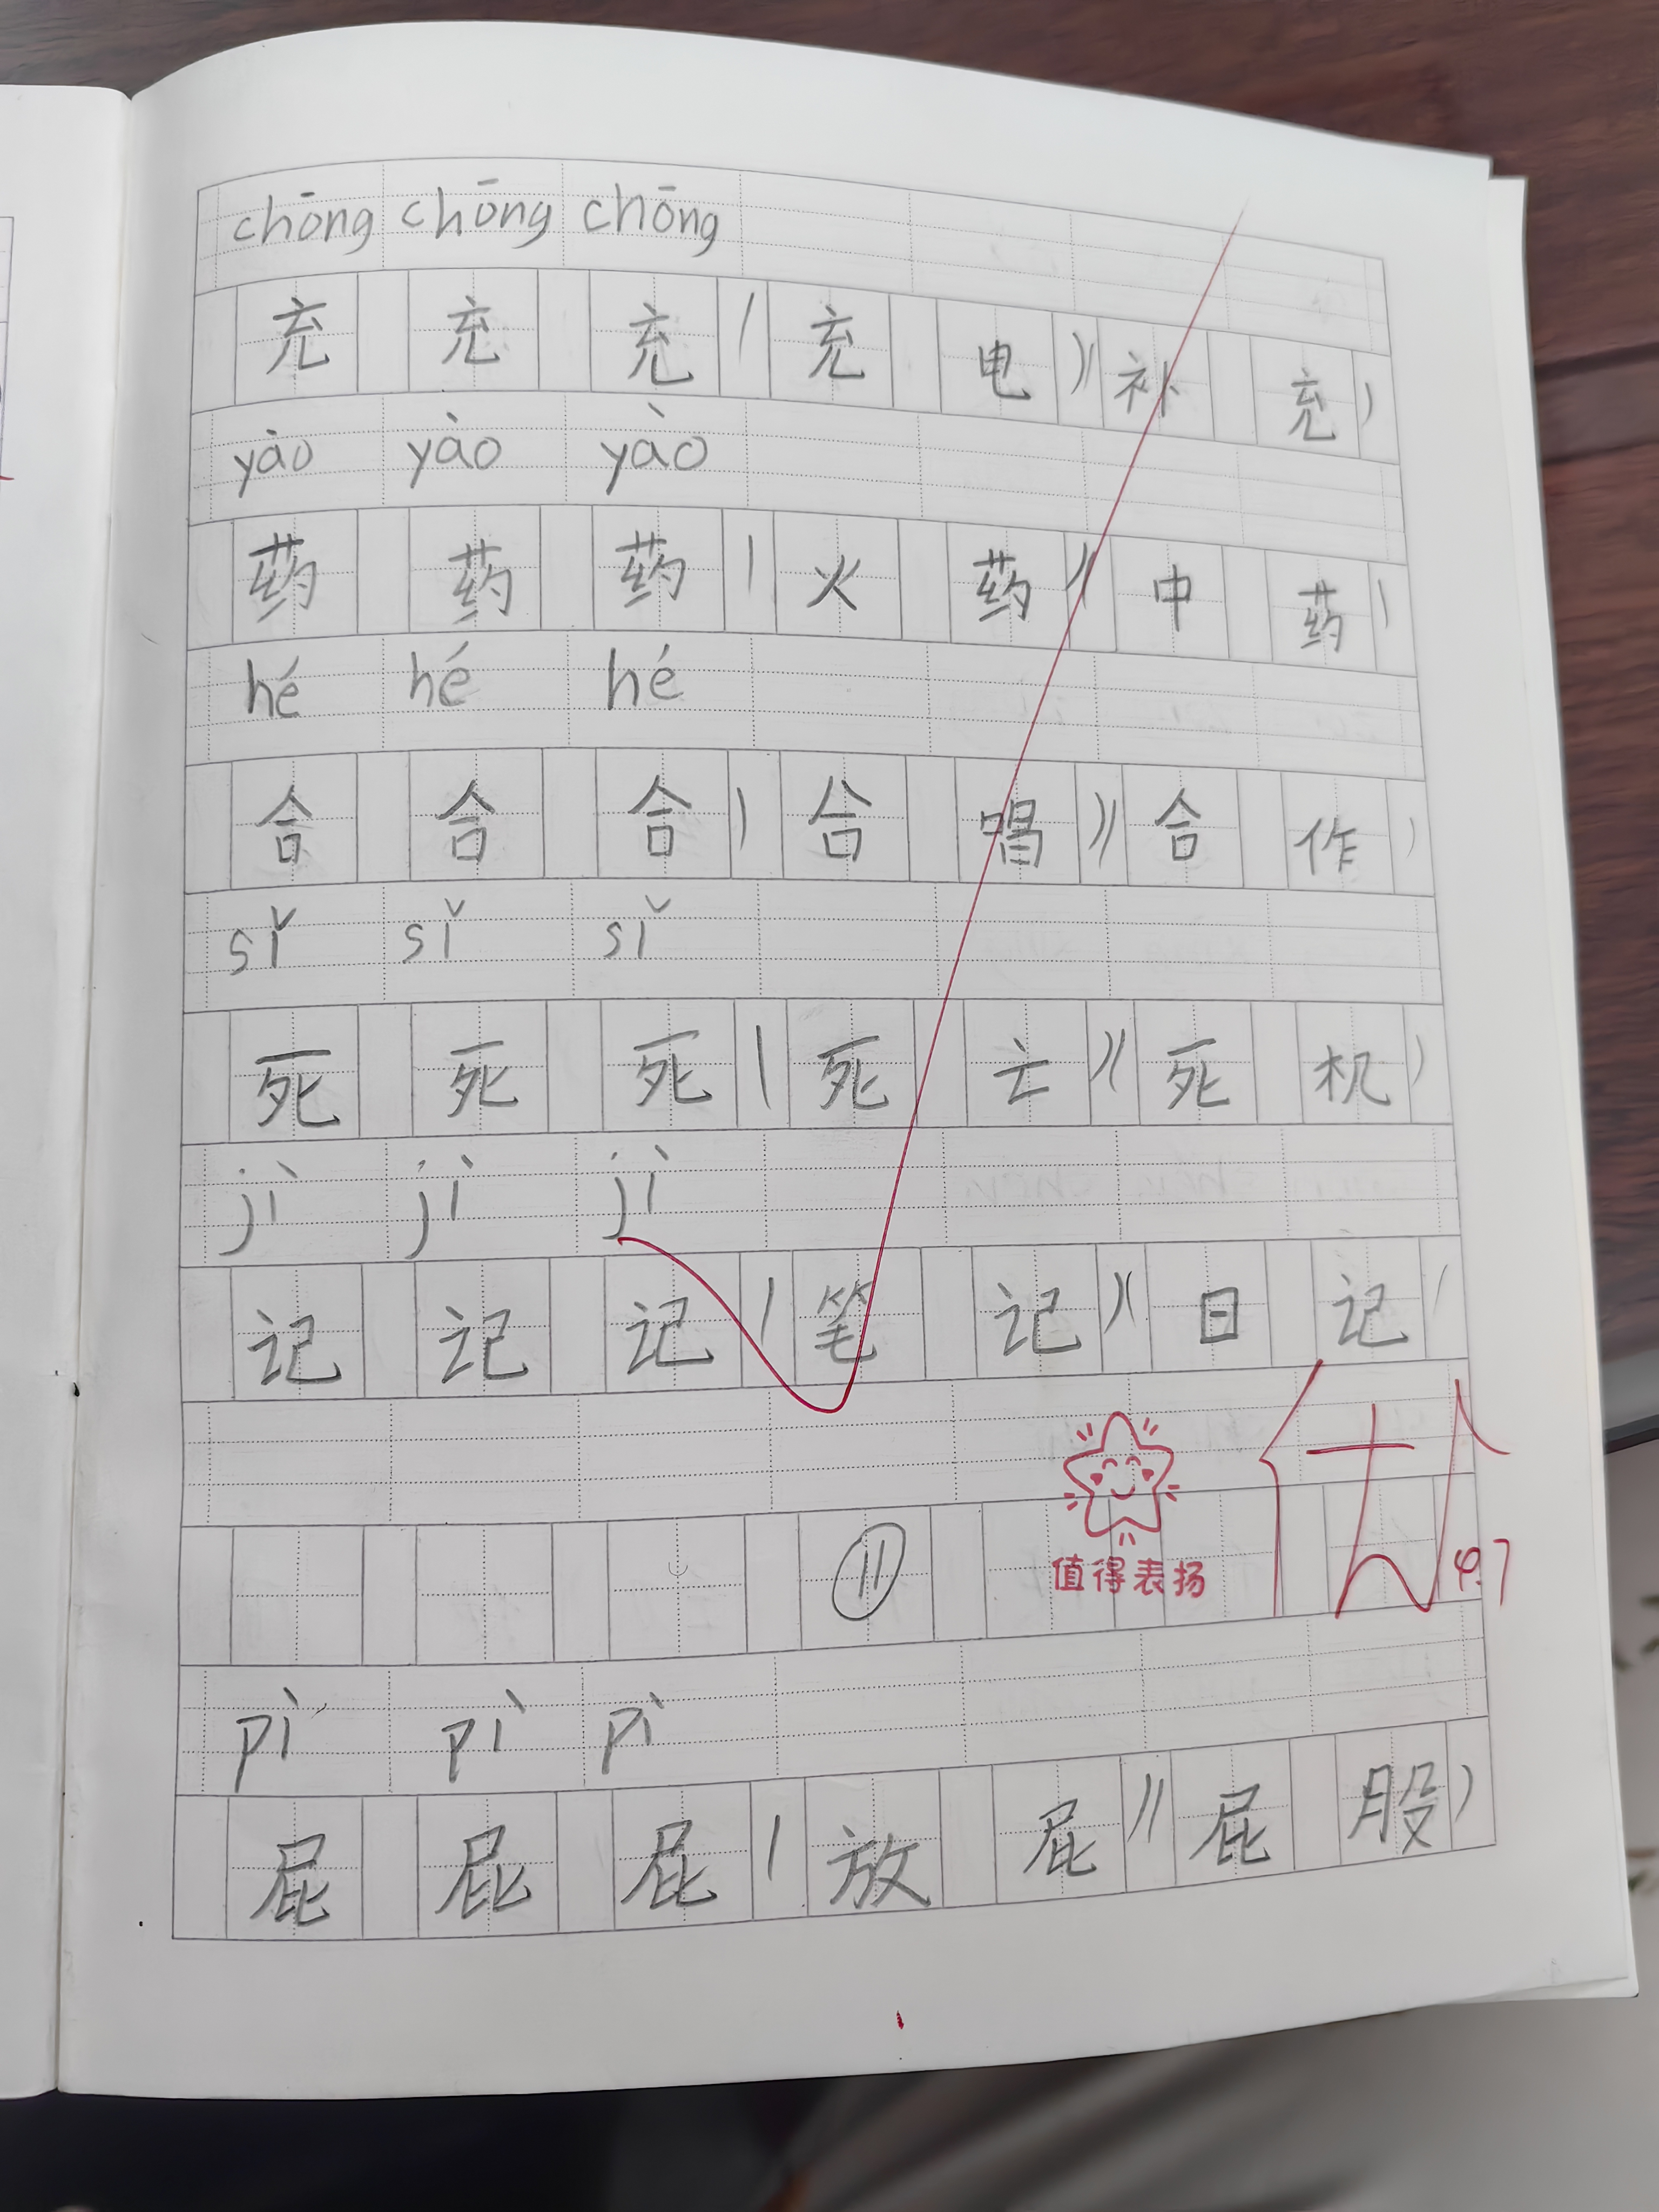 chōng chōng chōng
充 充 充 (充 电)(补 充)
yào yào yào
药 药 药 (火 药)(中 药)
hé hé hé
合 合 合 (合 唱)(合 作)
sǐ sǐ sǐ
死 死 死 (死 亡)(死 机)
jì jì jì
记 记 记 (笔 记)(日 记)
值得表扬
11
pì pì pì
屁 屁 屁 (放 屁)(屁 股)